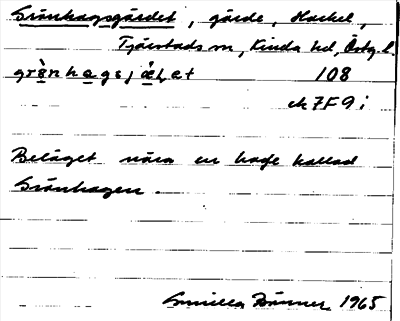 Grönhagsgärdet, gärde, Hackel,
Tjärstads sn, Kinda hd, Östg.l.
108
ek 7F9i
Beläget nära en hage kallad
Grönhagen.
Gunilla 1965